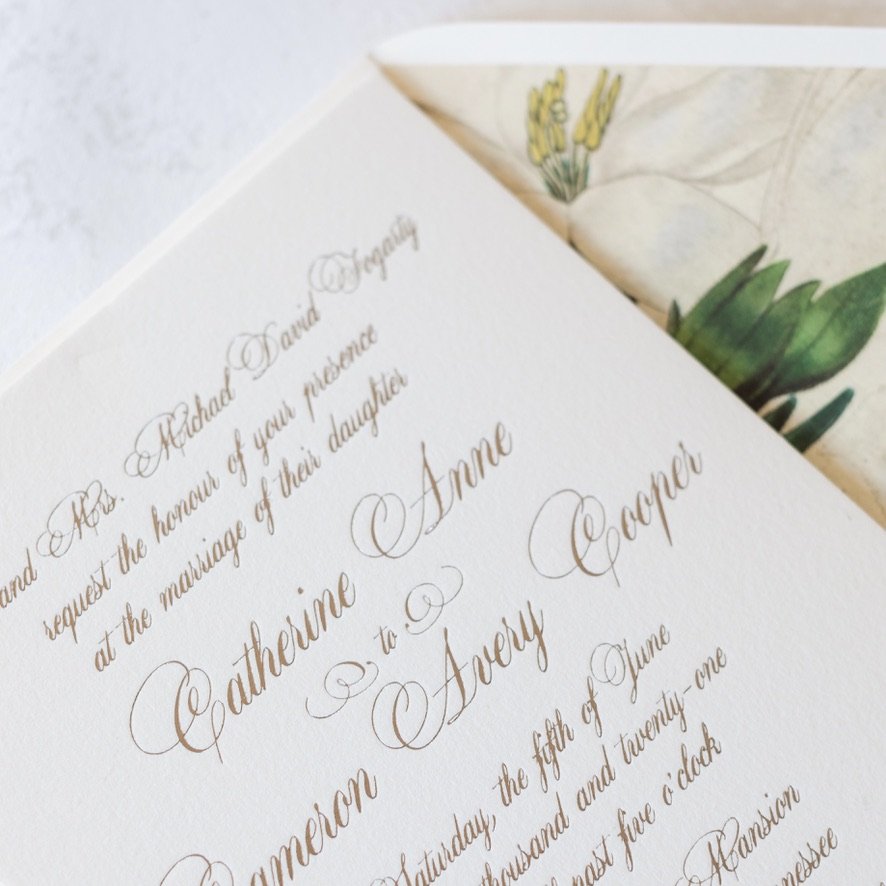 and Mrs. Michael David Fogarty
request the honour of your presence
at the marriage of their daughter
Catherine Anne
to
Cameron Avery Cooper
Saturday, the fifth of June
thousand and twenty-one
past five o'clock
Mansion